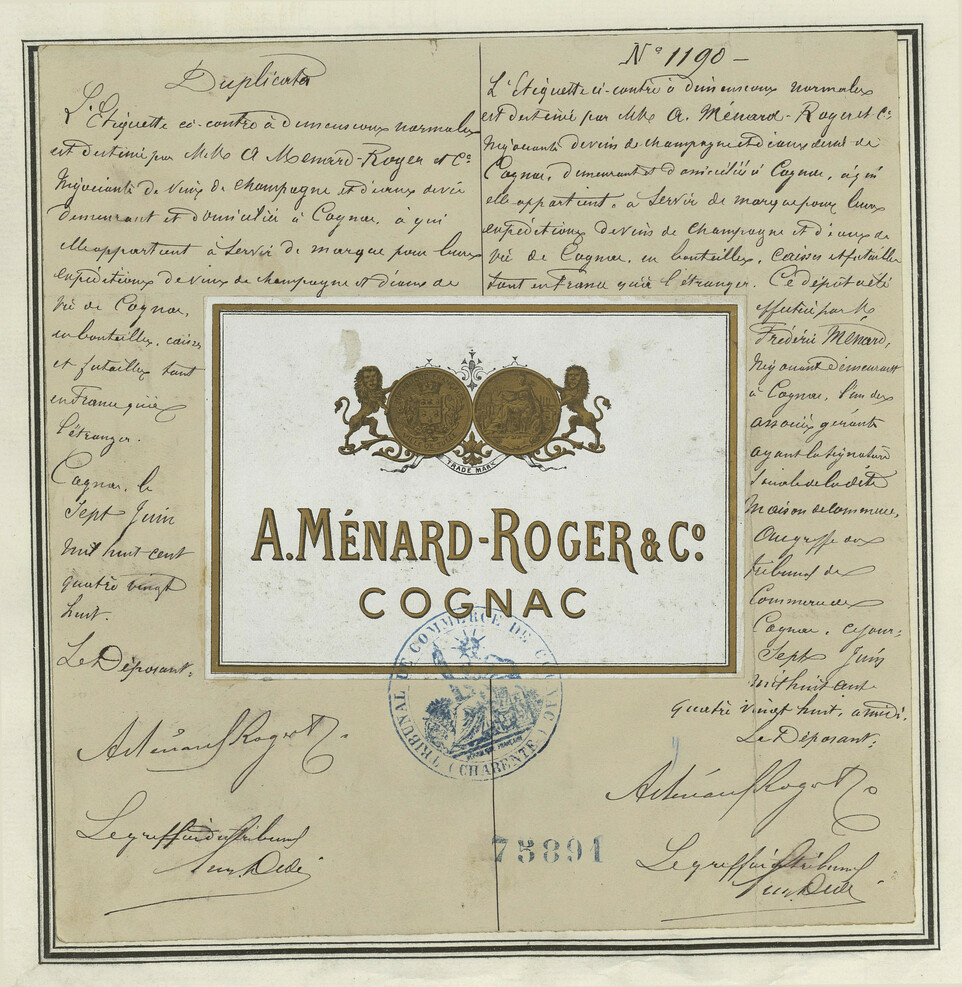 Duplicata
L'Etiquette ci-contre à dimensions normales
est destiné par M.M. A Menard-Roger et Co
Négociants de vins de champagne et d'eaux de vie
demeurant et domiciliés à Cognac, à qui
elle appartient à servir de marque pour leurs
expéditions de vins de champagne et d'eaux de
vie de Cognac,
en bouteilles, caisses
et futailles tant
en France qu'à
l'étranger.
Cognac, le
Sept Juin
mil huit cent
quatre vingt
huit.
Le Déposant:
A Ménard Roger & Co
Le greffier du tribunal
No 1190 -
L'Etiquette ci-contre à dimensions normales
est destiné par M.M. A. Ménard-Roger et Co
Négociants de vins de champagne et d'eaux de vie de
Cognac, demeurant et domiciliés à Cognac, à qui
elle appartient, à servir de marque pour leurs
expéditions de vins de champagne et d'eaux de
vie de Cognac, en bouteilles, caisses et futailles
tant en France qu'à l'étranger. Ce dépôt a été
effectué par M.
Frédéric Ménard,
Négociant demeurant
à Cognac, l'un des
associés gérants
ayant la signature
sociale de la dite
Maison de commerce,
au greffe du
tribunal de
Commerce de
Cognac, ce jour:
Sept Juin
mil huit cent
quatre vingt huit, à midi.
Le Déposant:
A Ménard Roger & Co
Le greffier du tribunal
TRADE MARK
A. MÉNARD-ROGER & Co
COGNAC
TRIBUNAL DE COMMERCE DE COGNAC
(CHARENTE)
75891